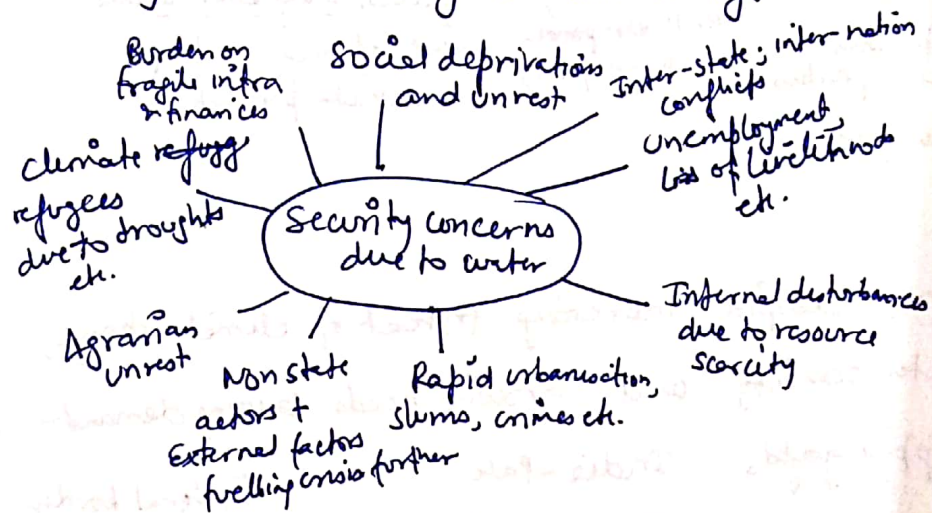 Burden on
fragile infra
& finances
Social deprivations
and unrest
Inter-state; inter-nation
conflicts
Unemployment,
loss of livelihoods
etc.
Climate
refugees
due to droughts
etc.
Security concerns
due to water
Internal disturbances
due to resource
scarcity
Agrarian
unrest
Non state
actors +
External factors
fuelling crisis further
Rapid urbanisation,
slums, crimes etc.